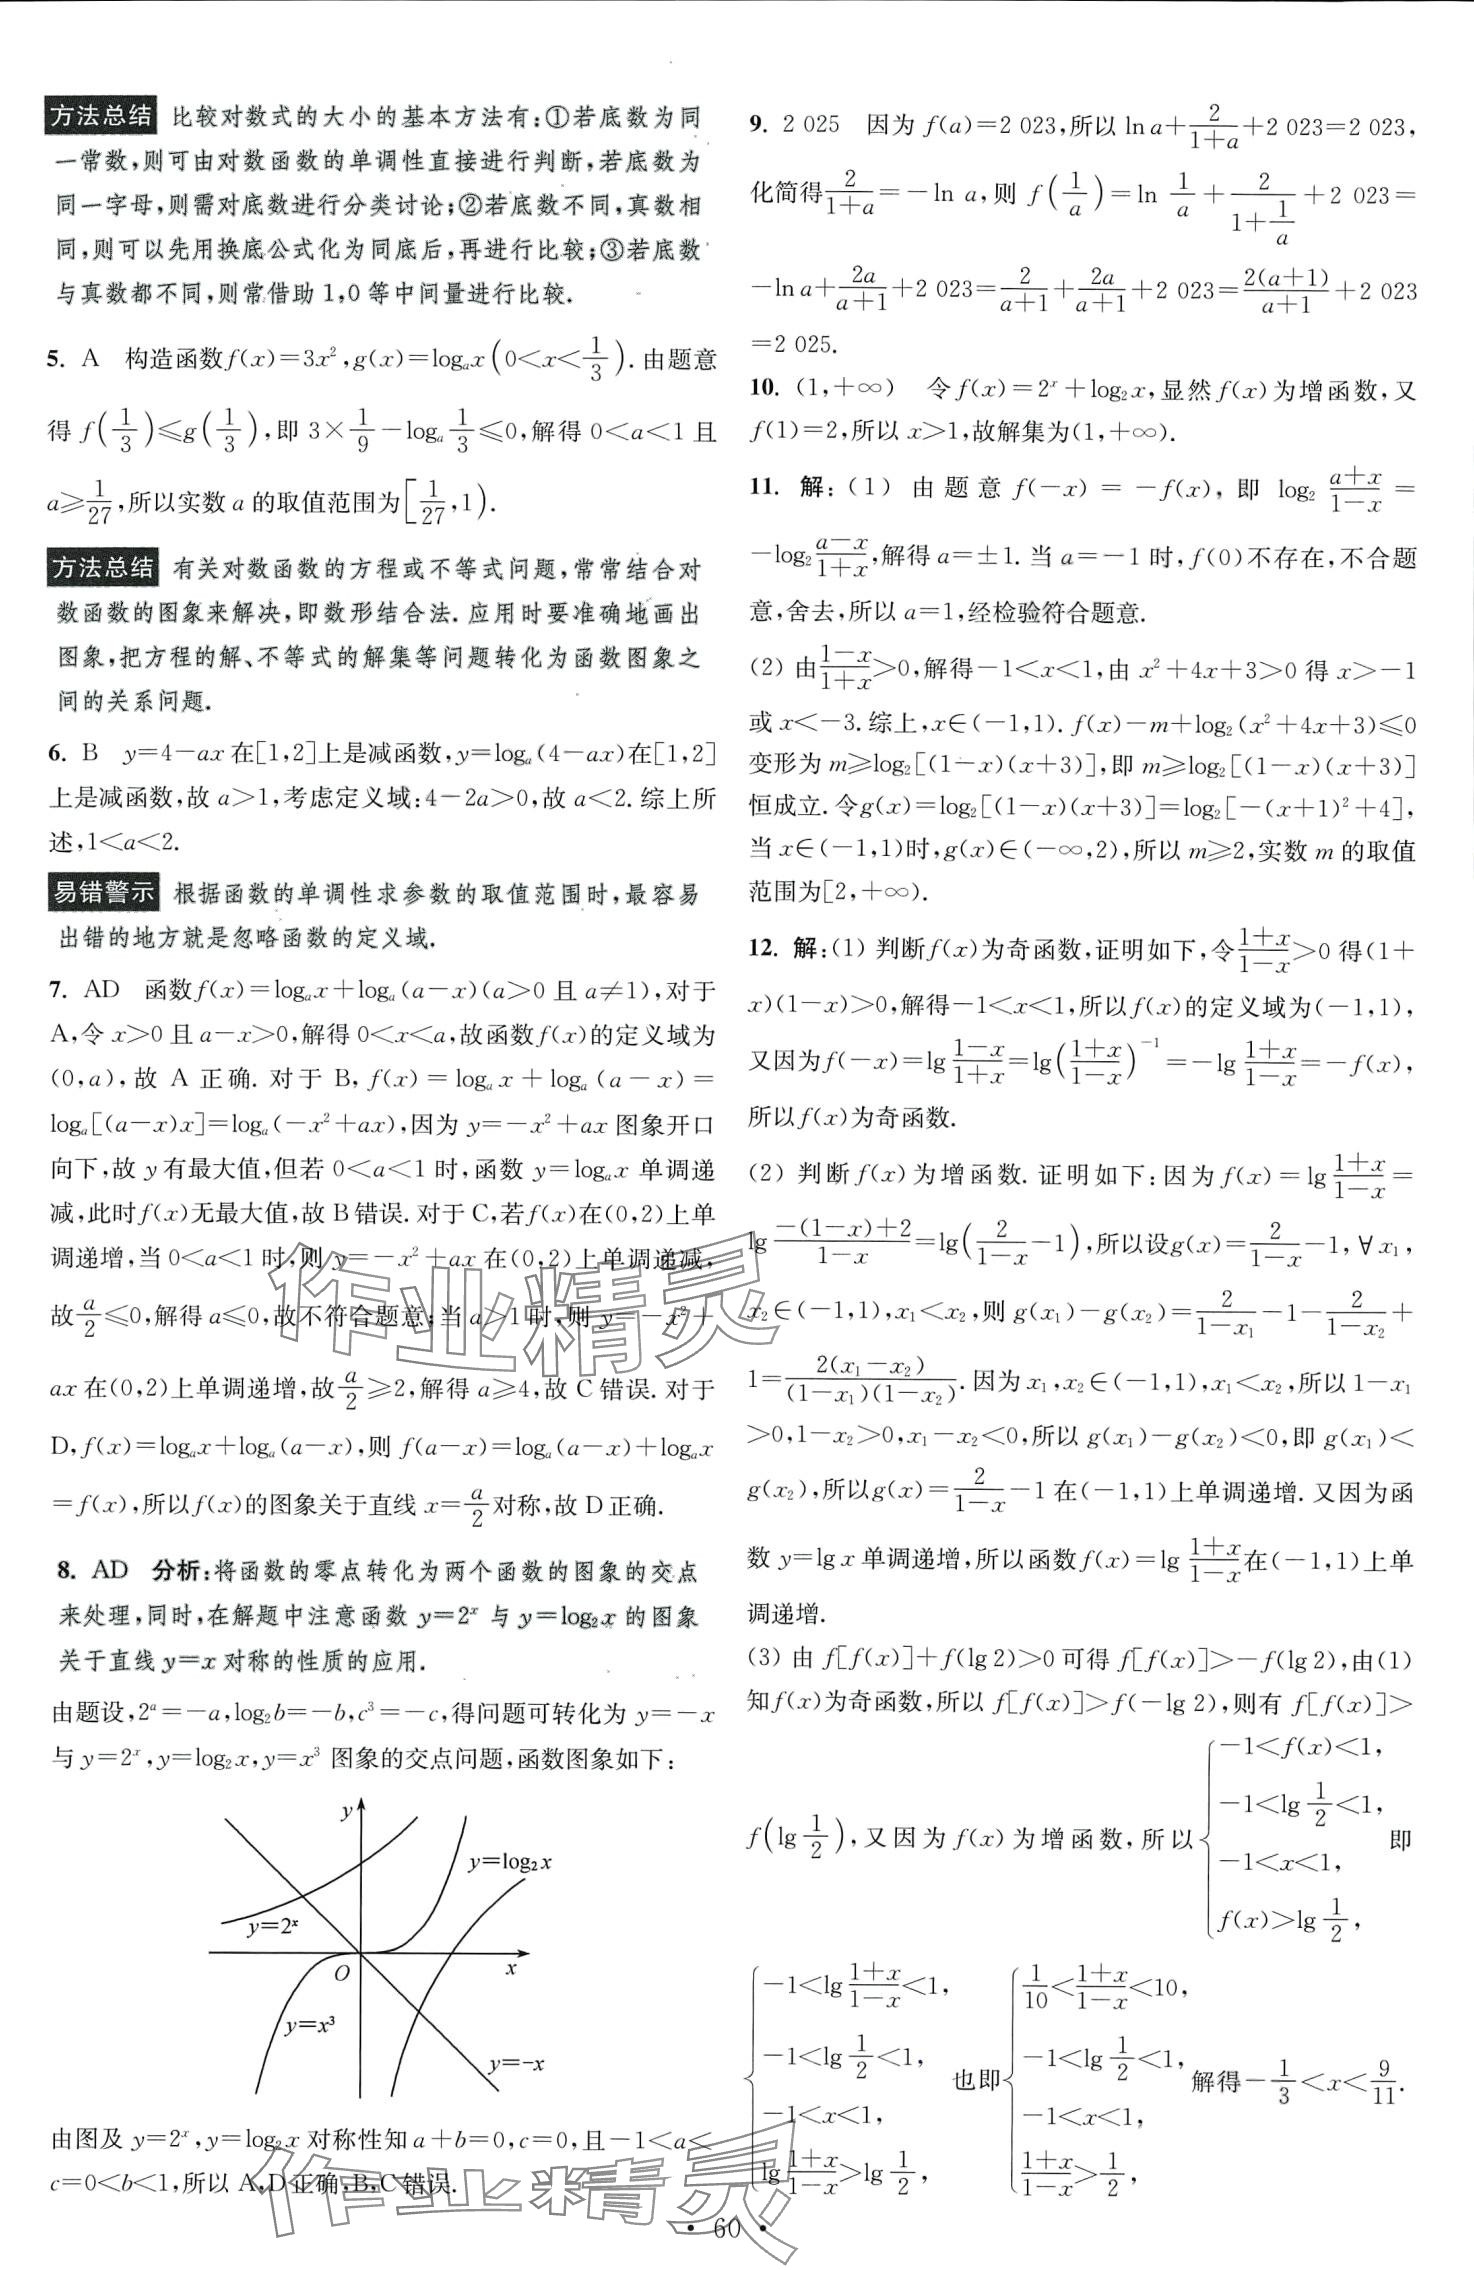 方法总结 比较对数式的大小的基本方法有:①若底数为同
一常数,则可由对数函数的单调性直接进行判断,若底数为
同一字母,则需对底数进行分类讨论;②若底数不同,真数相
同,则可以先用换底公式化为同底后,再进行比较;③若底数
与真数都不同,则常借助 1,0 等中间量进行比较.
5. A 构造函数f(x)=3x²,g(x)=logₐx(0<x<1/3).由题意
得 f(1/3)≤g(1/3),即 3×1/9-logₐ1/3≤0,解得 0<a<1 且
a≥1/27,所以实数 a 的取值范围为[1/27,1).
方法总结 有关对数函数的方程或不等式问题,常常结合对
数函数的图象来解决,即数形结合法.应用时要准确地画出
图象,把方程的解、不等式的解集等问题转化为函数图象之
间的关系问题.
6. B y=4-ax在[1,2]上是减函数,y=logₐ(4-ax)在[1,2]
上是减函数,故 a>1,考虑定义域:4-2a>0,故 a<2.综上所
述,1<a<2.
易错警示 根据函数的单调性求参数的取值范围时,最容易
出错的地方就是忽略函数的定义域.
7. AD 函数f(x)=logₐx+logₐ(a-x)(a>0 且 a≠1),对于
A,令 x>0 且 a-x>0,解得 0<x<a,故函数f(x)的定义域为
(0,a),故 A 正确. 对于 B, f(x)=logₐx+logₐ(a-x)=
logₐ[(a-x)x]=logₐ(-x²+ax),因为 y=-x²+ax 图象开口
向下,故 y 有最大值,但若 0<a<1 时,函数 y=logₐx 单调递
减,此时f(x)无最大值,故 B错误. 对于 C,若f(x)在(0,2)上单
调递增,当 0<a<1 时,则 y=-x²+ax 在(0,2)上单调递减,
故a/2≤0,解得 a≤0,故不符合题意;当 a>1 时,则 y=-x²+
ax 在(0,2)上单调递增,故a/2≥2,解得 a≥4,故 C 错误. 对于
D,f(x)=logₐx+logₐ(a-x),则 f(a-x)=logₐ(a-x)+logₐx
=f(x),所以f(x)的图象关于直线 x=a/2对称,故 D 正确.
8. AD 分析:将函数的零点转化为两个函数的图象的交点
来处理,同时,在解题中注意函数 y=2ˣ 与 y=log₂x 的图象
关于直线 y=x 对称的性质的应用.
由题设,2ᵃ=-a,log₂b=-b,c³=-c,得问题可转化为 y=-x
与 y=2ˣ,y=log₂x,y=x³ 图象的交点问题,函数图象如下:
y
y=log₂x
y=2ˣ
O
x
y=x³
y=-x
由图及 y=2ˣ,y=log₂x 对称性知 a+b=0,c=0,且-1<a<
c=0<b<1,所以 A,D正确,B,C错误.
9. 2 025 因为 f(a)=2 023,所以 ln a+2/(1+a)+2 023=2 023,
化简得2/(1+a)=-ln a,则 f(1/a)=ln 1/a+2/(1+1/a)+2 023=
-ln a+2a/(a+1)+2 023=2/(a+1)+2a/(a+1)+2 023=2(a+1)/(a+1)+2 023
=2 025.
10. (1,+∞) 令 f(x)=2ˣ+log₂x,显然 f(x)为增函数,又
f(1)=2,所以 x>1,故解集为(1,+∞).
11. 解:(1) 由题意 f(-x)=-f(x),即 log₂(a+x)/(1-x)=
-log₂(a-x)/(1+x),解得 a=±1. 当 a=-1 时,f(0)不存在,不合题
意,舍去,所以 a=1,经检验符合题意.
(2) 由(1-x)/(1+x)>0,解得-1<x<1,由 x²+4x+3>0 得 x>-1
或 x<-3.综上,x∈(-1,1). f(x)-m+log₂(x²+4x+3)≤0
变形为 m≥log₂[(1-x)(x+3)],即 m≥log₂[(1-x)(x+3)]
恒成立.令g(x)=log₂[(1-x)(x+3)]=log₂[-(x+1)²+4],
当 x∈(-1,1)时,g(x)∈(-∞,2),所以 m≥2,实数 m 的取值
范围为[2,+∞).
12. 解:(1) 判断f(x)为奇函数,证明如下,令(1+x)/(1-x)>0 得(1+
x)(1-x)>0,解得-1<x<1,所以 f(x)的定义域为(-1,1),
又因为f(-x)=lg(1-x)/(1+x)=lg((1+x)/(1-x))⁻¹=-lg(1+x)/(1-x)=-f(x),
所以 f(x)为奇函数.
(2) 判断 f(x)为增函数. 证明如下:因为 f(x)=lg(1+x)/(1-x)=
lg(-(1-x)+2)/(1-x)=lg(2/(1-x)-1),所以设g(x)=2/(1-x)-1,∀x₁,
x₂∈(-1,1),x₁<x₂,则 g(x₁)-g(x₂)=2/(1-x₁)-1-2/(1-x₂)+
1=2(x₁-x₂)/((1-x₁)(1-x₂)).因为 x₁,x₂∈(-1,1),x₁<x₂,所以 1-x₁
>0,1-x₂>0,x₁-x₂<0,所以 g(x₁)-g(x₂)<0,即 g(x₁)<
g(x₂),所以g(x)=2/(1-x)-1在(-1,1)上单调递增. 又因为函
数 y=lg x 单调递增,所以函数f(x)=lg(1+x)/(1-x)在(-1,1)上单
调递增.
(3) 由 f[f(x)]+f(lg 2)>0可得 f[f(x)]>-f(lg 2),由(1)
知f(x)为奇函数,所以 f[f(x)]>f(-lg 2),则有 f[f(x)]>
f(lg 1/2),又因为 f(x)为增函数,所以{-1<f(x)<1, -1<lg 1/2<1, -1<x<1, f(x)>lg 1/2, 即
{-1<lg(1+x)/(1-x)<1, -1<lg 1/2<1, -1<x<1, lg(1+x)/(1-x)>lg 1/2, 也即{1/10<(1+x)/(1-x)<10, -1<lg 1/2<1, -1<x<1, (1+x)/(1-x)>1/2, 解得-1/3<x<9/11.
作业精灵
作业精灵
• 60 •